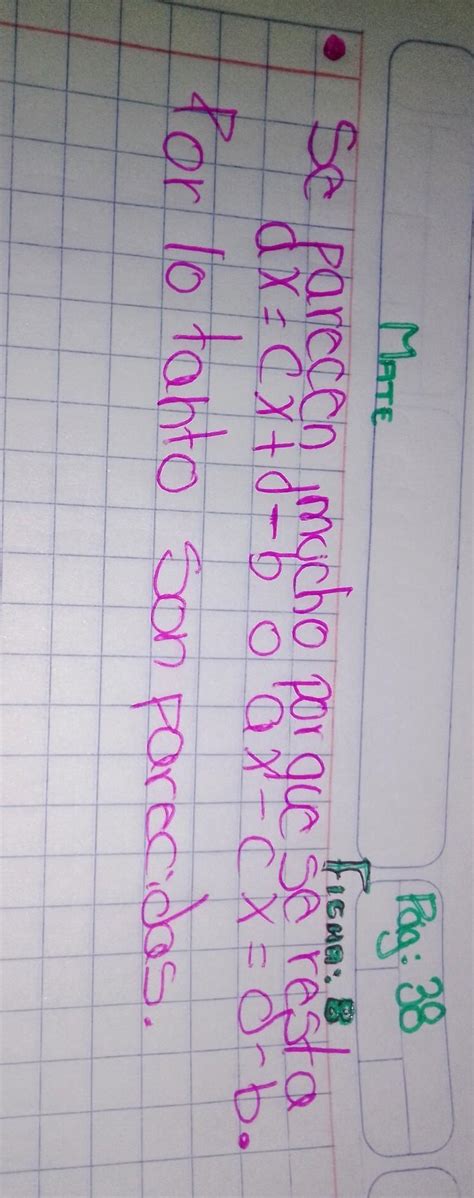 MATE
Pág: 38
FICHA: 8
Se parecen mucho porque se resta
ax = cx + d - b o ax - cx = d - b.
Por lo tanto son parecidas.